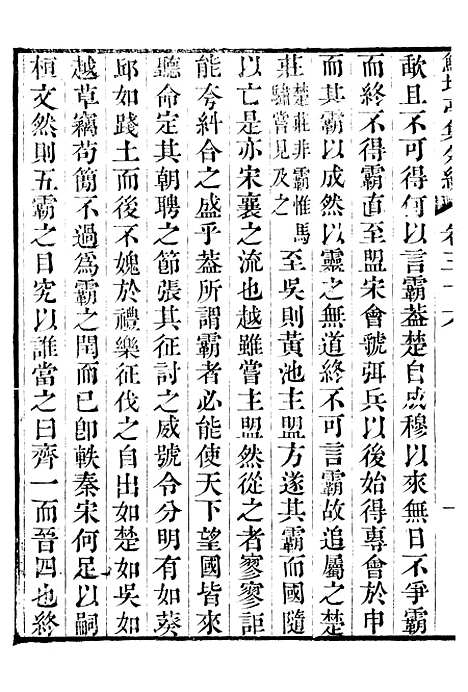 鮚埼亭集外編 卷三十六
歃且不可得何以言霸葢楚自成穆以來無日不爭霸
而終不得霸直至盟宋會虢弭兵以後始得專會於申
而其霸以成然以靈之無道終不可言霸故追屬之楚
莊楚莊非霸惟馬驌嘗見及之至吳則黃池主盟方遂其霸而國隨
以亡是亦宋襄之流也越雖嘗主盟然從之者寥寥詎
能夸糾合之盛乎葢所謂霸者必能使天下望國皆來
聽命定其朝聘之節張其征討之威號令分明有如葵
邱如踐土而後不媿於禮樂征伐之自出如楚如吳如
越草竊苟簡不過爲霸之閏而已卽軼秦宋何足以嗣
桓文然則五霸之目究以誰當之曰齊一而晉四也終